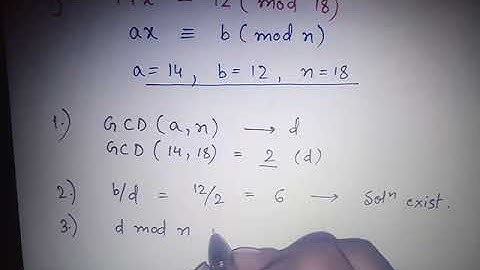 12 ( mod 18)
ax ≡ b ( mod n)
a = 14 , b = 12 , n = 18
1.) GCD ( a, n) → d
GCD ( 14, 18) = 2 (d)
2.) b/d = 12/2 = 6 → Solⁿ exist.
3.) d mod n